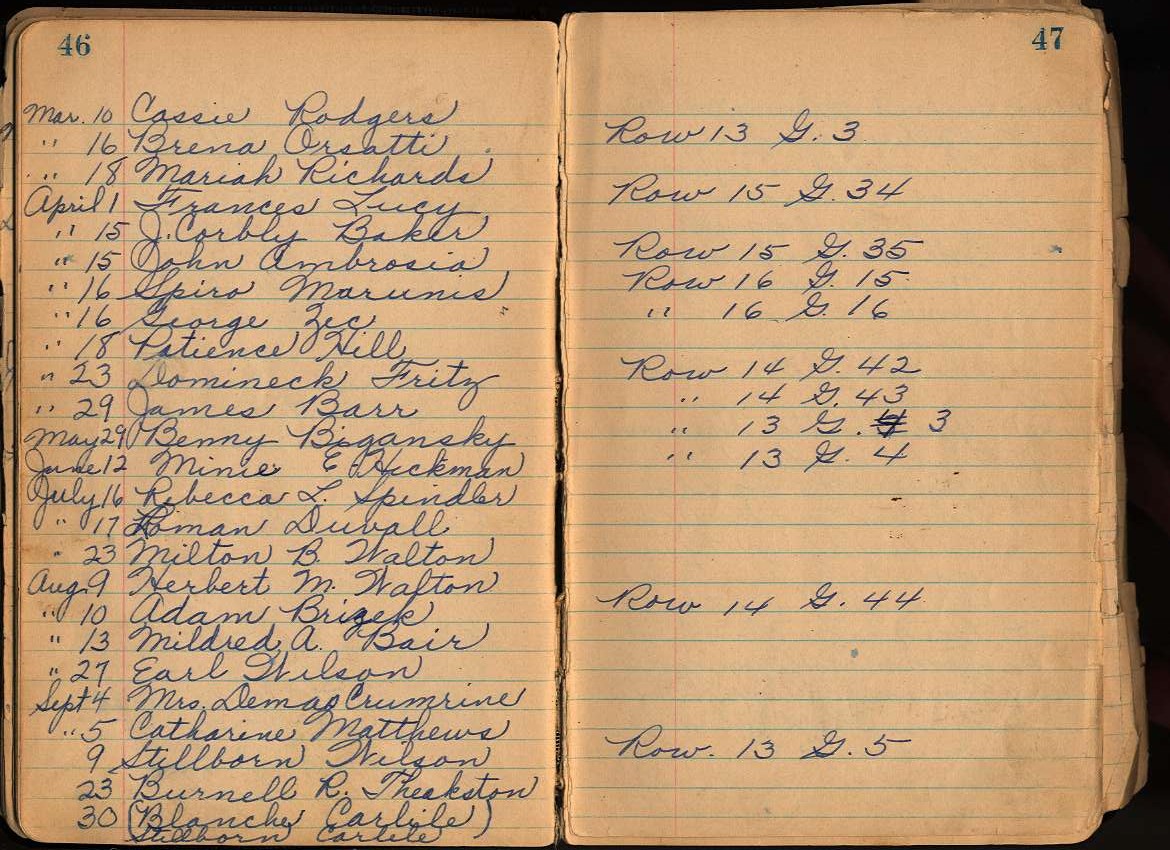 46
Mar. 10 Cassie Rodgers
" 16 Brena Orsatti
" 18 Mariah Richards
April 1 Frances Lucy
" 15 J. Corbly Baker
" 15 John Ambrosia
" 16 Spiro Marunis
" 16 George Zec
" 18 Patience Hill
" 23 Domineck Fritz
" 29 James Barr
May 29 Benny Bigansky
June 12 Minie E. Hickman
July 16 Rebecca L. Spindler
" 17 Loman Duvall
" 23 Milton B. Walton
Aug. 9 Herbert M. Walton
" 10 Adam Brizek
" 13 Mildred A. Bair
" 27 Earl Wilson
Sept 4 Mrs. Demas Crumrine
" 5 Catharine Matthews
9 Stillborn Wilson
23 Burnell R. Theakston
30 (Blanche Carlile)
Stillborn Carlile
47
Row 13 G. 3
Row 15 G. 34
Row 15 G. 35
Row 16 G. 15
" 16 G. 16
Row 14 G. 42
" 14 G. 43
" 13 G. 3
" 13 G. 4
Row 14 G. 44
Row. 13 G. 5